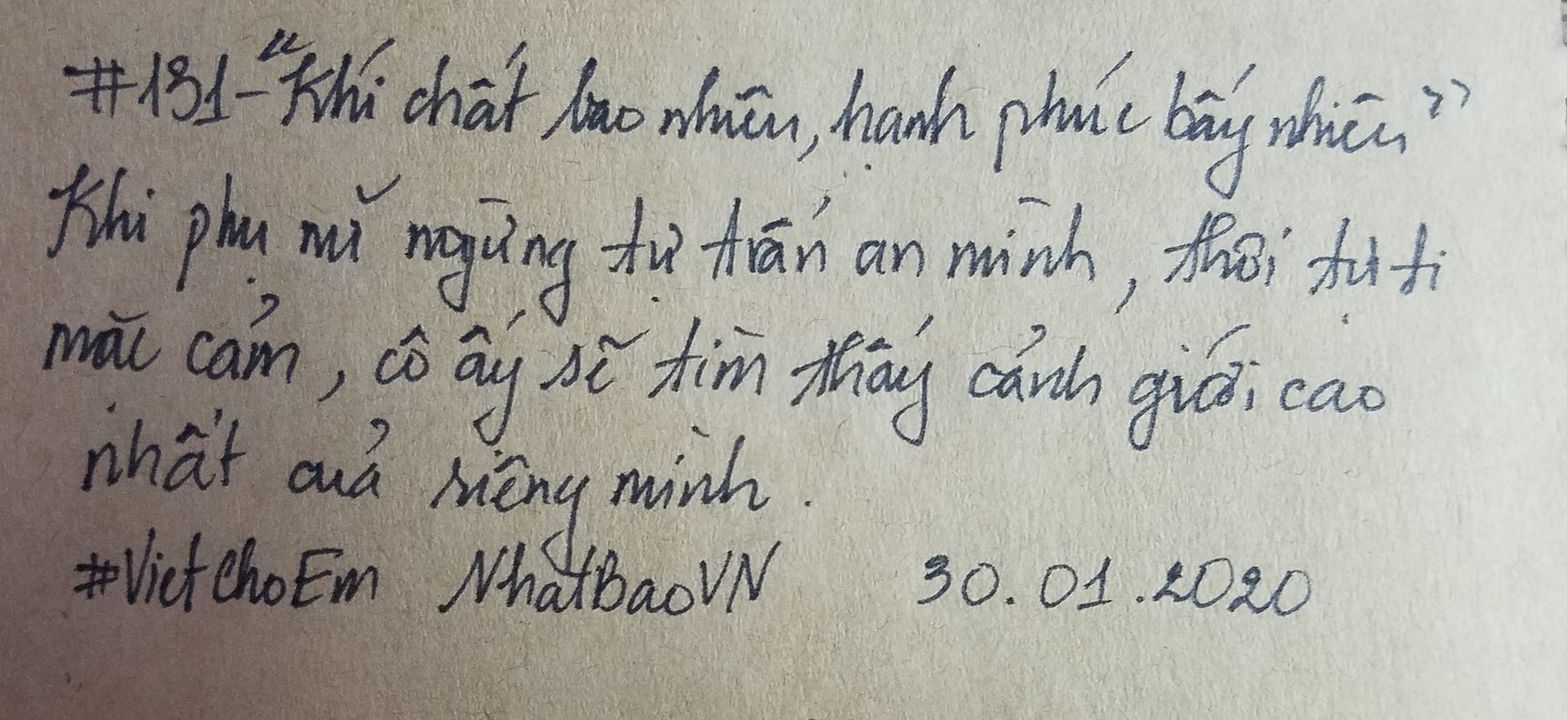 #131-"Khí chất bao nhiêu, hạnh phúc bấy nhiêu"
Khi phụ nữ ngừng tự trấn an mình, thôi tự ti
mặc cảm, cô ấy sẽ tìm thấy cảnh giới cao
nhất của riêng mình.
#VietchoEm NhấtBaoVN 30.01.2020